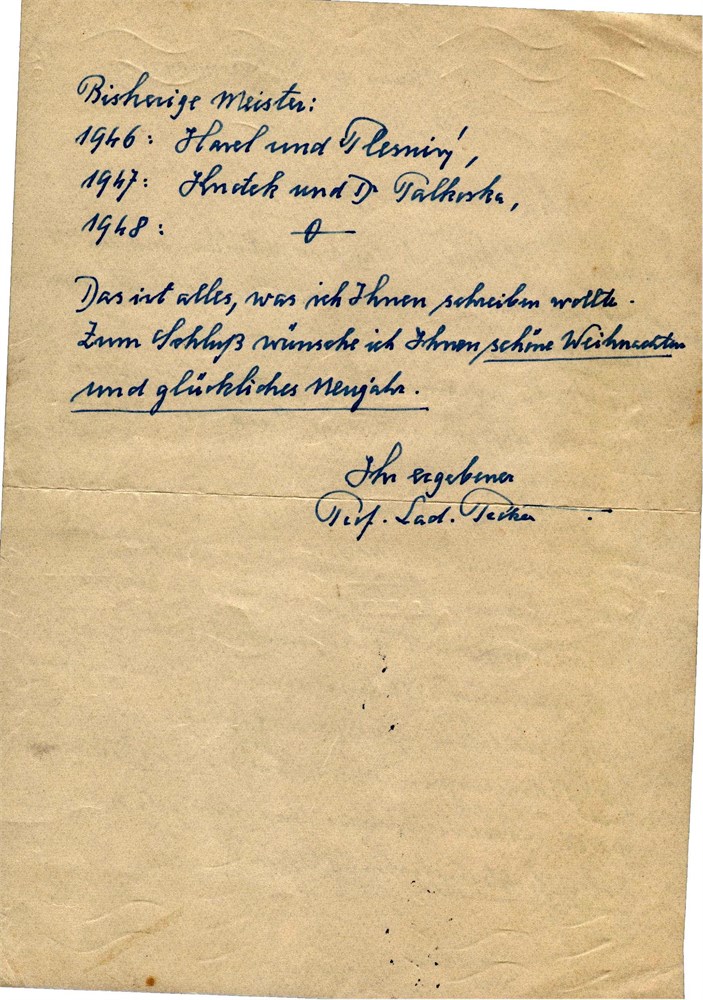 Bisherige Meister:
1946: Havel und Plesnivý,
1947: Knotek und Dr Palkoska,
1948: 0
Das ist alles, was ich Ihnen schreiben wollte.
Zum Schluß wünsche ich Ihnen schöne Weihnachten
und glückliches Neujahr.
Ihr ergebener
Prof. Lad.